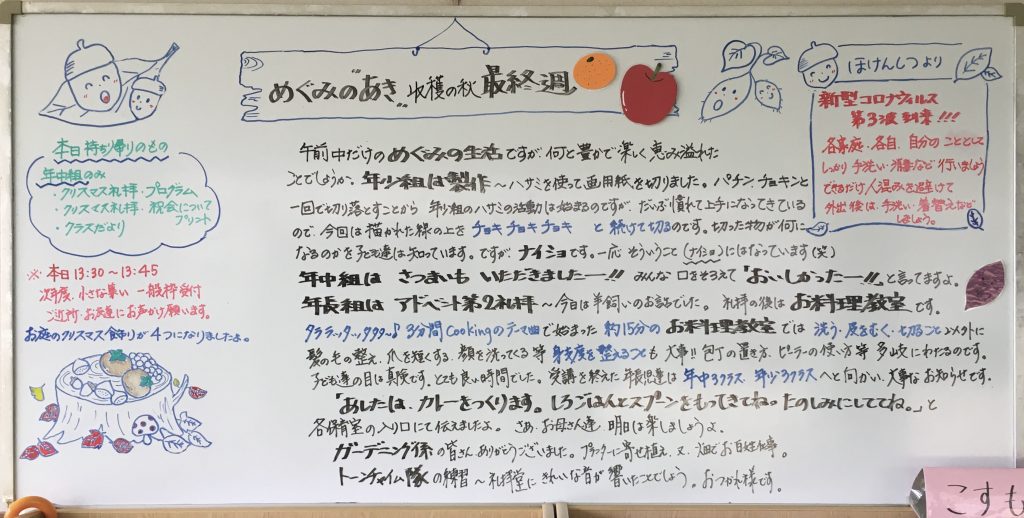 めぐみの"あき" 収穫の秋 最終週
本日持ち帰りのもの
年中組のみ
・クリスマス礼拝・プログラム
・クリスマス礼拝・祝会について
プリント
・クラスだより
※ 本日 13:30~13:45
次年度 小さな集い 一般枠受付
ご近所・お友達にお声かけ願います。
お庭のクリスマス飾りが4つになりましたよ。
午前中だけのめぐみの生活ですが、何と豊かで楽しく恵み溢れた
ことでしょうか。年少組は製作~ハサミを使って画用紙を切りました。パチン、チョキンと
一回で切り落とすことから 年少組のハサミの活動は始まるのですが、だいぶ慣れて上手になってきている
ので、今回は描かれた線の上をチョキチョキチョキ と続けて切るのです。切った物が何に
なるのかを子ども達は知っています。ですが、ナイショです。一応そういうこと(ナイショ)にはなっています(笑)
年中組は さつまいも いただきましたー!! みんな口をそろえて「おいしかったー!!」と言ってますよ。
年長組は アドベント第2礼拝~今日は羊飼いのお話でした。礼拝の後は お料理教室です。
タララッタッタタタ~♪ 3分間Cookingのテーマ曲で始まった 約15分の お料理教室では 洗う・皮をむく・切ることをメインに
髪の毛の整え、爪を短くする、顔を洗ってくる等 身支度を整えることも大事!! 包丁の置き方、ピーラーの使い方等 多岐にわたるのです。
子ども達の目は真剣です。とても良い時間でした。受講を終えた年長児達は 年中3クラス 年少3クラスへと向かい、大事なお知らせです。
「あしたは、カレーをつくります。しろごはんとスプーンをもってきてね。たのしみにしててね。」と
各保育室の入り口にて伝えましたよ。さあ、お母さん達 明日は楽しましょうよ。
ガーデニング係の皆さん ありがとうございました。プランターに寄せ植え、又、畑でお自性仕事。
トーンチャイム隊の練習~礼拝堂にきれいな音が響いたことでしょう。おつかれ様です。
ほけんしつより
新型コロナウィルス
第3波 到来!!!
各家庭、各自、自分のこととして
しっかり手洗い・消毒など行いましょう
できるだけ人混みを避けて
外出後は、手洗い・着替えなど
しましょう。
こすも